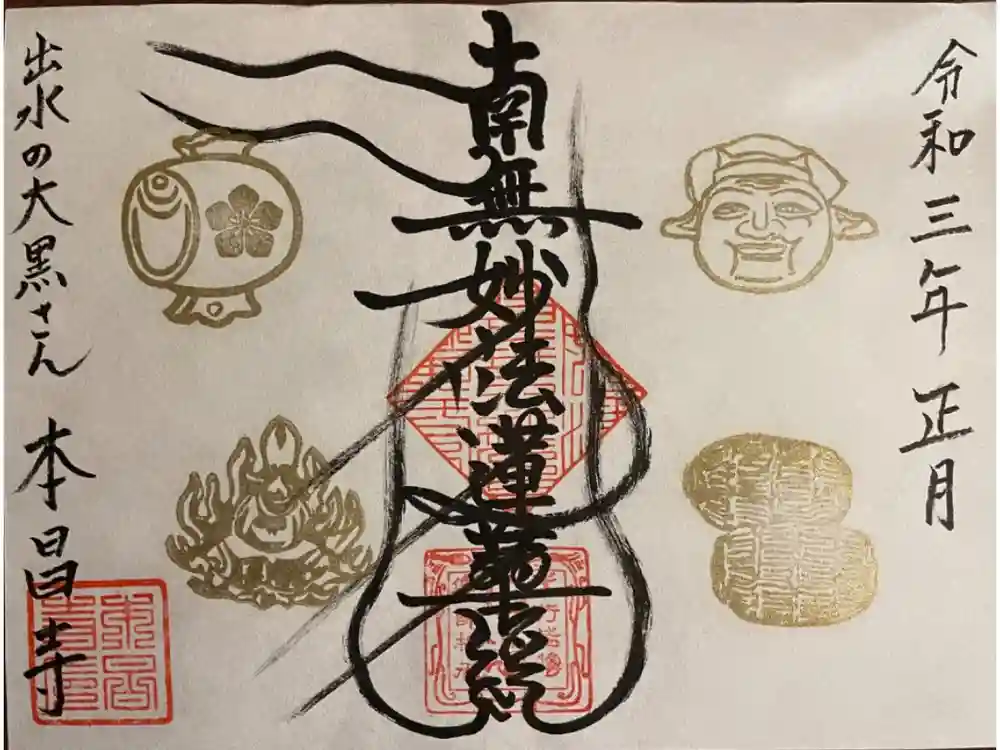 令和三年 正月
南無妙法蓮華経
出水の大黒さん 本昌寺